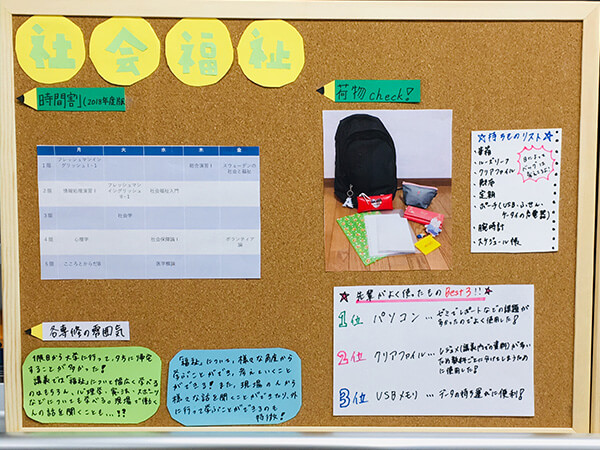 社会福祉
時間割(2018年度版)
荷物check!
月 火 水 木 金
1限 フレッシュマンイングリッシュⅠ-1 総合演習Ⅰ スウェーデンの社会と福祉
2限 情報処理演習Ⅰ フレッシュマンイングリッシュⅡ-1 社会福祉入門
3限 社会学
4限 心理学 社会保障論Ⅰ ボランティア論
5限 こころとからだ 医学概論
☆持ちものリスト☆
・筆箱
・ルーズリーフ
・クリアファイル
・財布
・定期
・ポーチ(USB・ふせん・
ケータイの充電器)
・腕時計
・スケジュール帳
各専修の雰囲気
1限目から大学に行って、夕方に帰宅
することが多かった!
講義では「福祉」について幅広く学べる
のはもちろん、心理学・
などについても学べる。現場で働く
人の話を聞くことも…!!
「福祉」について、様々な角度から
学ぶことができ、考えていくこと
ができる!また、現場の人から
様々な話を聞くことができたり、外
に行って学ぶことができるのも
特徴!
★先輩がよく使ったもの Best3!!★
1位 パソコン … ゼミでレポートなどの課題が
多かったのでよく使用した!
2位 クリアファイル … レジュメ(講義内での資料)が多い
ため教科ごとに分けてしまうため
に使用した!
3位 USBメモリ … データの持ち運びに便利!